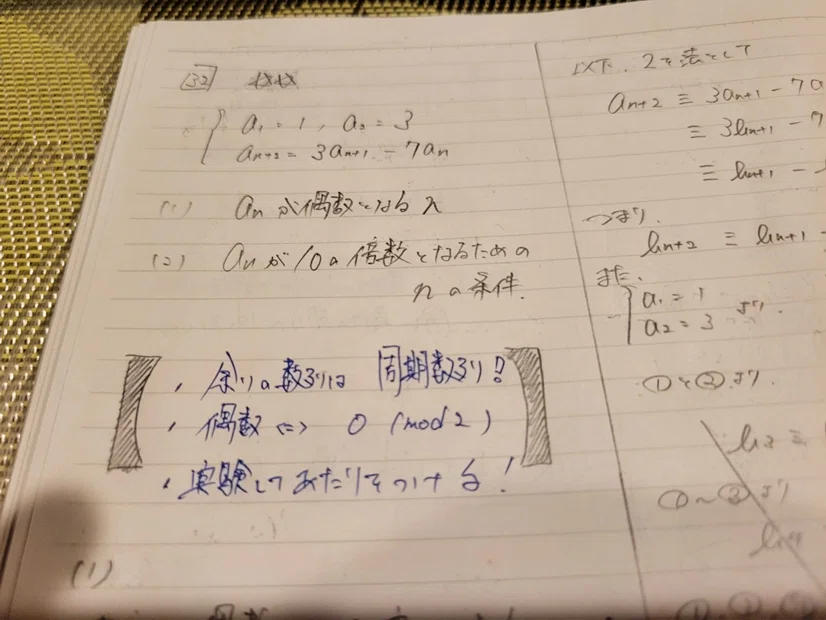 32
{ a₁ = 1 , a₂ = 3
aₙ₊₂ = 3aₙ₊₁ - 7aₙ
(1) aₙが偶数となるn
(2) aₙが10の倍数となるための
nの条件.
・余りの数列は 周期数列?
・偶数 ⇔ 0 (mod 2)
・実験してあたりをつける!
(1)
以下. 2を法として
aₙ₊₂ ≡ 3aₙ₊₁ - 7a
≡ 3bₙ₊₁ - 7
≡ bₙ₊₁ -
つまり.
bₙ₊₂ ≡ bₙ₊₁
また.
{ a₁ = 1
a₂ = 3 より.
①と②より.
b₃ ≡
①~③より
b₄